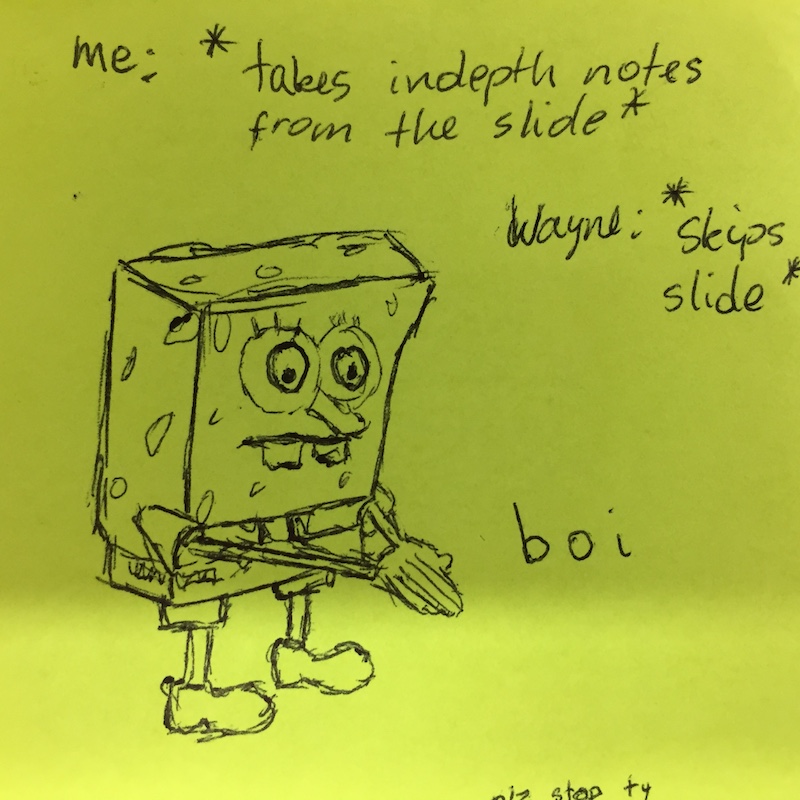 me: *takes indepth notes
from the slide*
Wayne: *skips
slide*
boi
plz stop ty